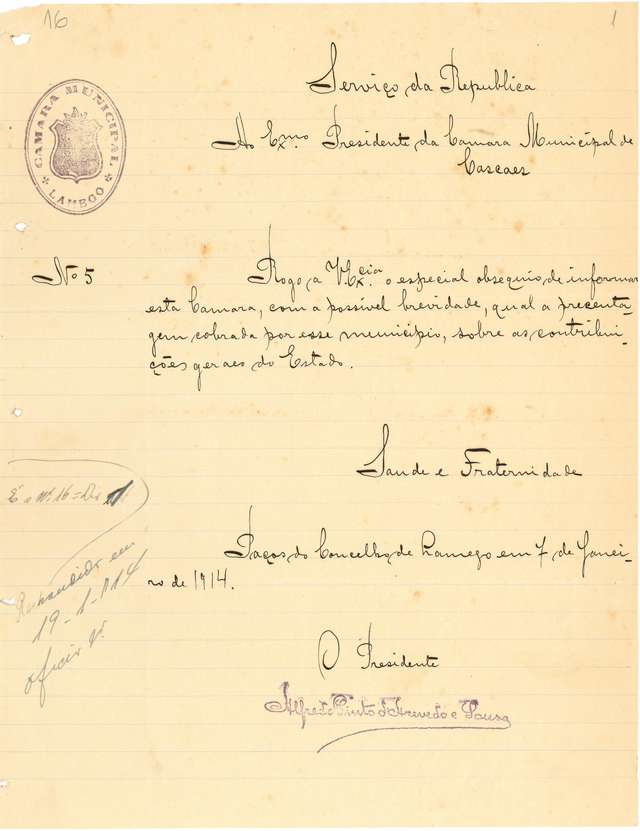 16
1
Serviço da Republica
CAMARA MUNICIPAL
LAMEGO
Ao Exmo. Presidente da Camara Municipal de
Cascaes
Nº 5
Rogo a V. Excia. o especial obsequio de informar
esta Camara, com a possivel brevidade, qual a precenta-
gem cobrada por esse municipio, sobre as contribui-
ções geraes do Estado.
Saude e Fraternidade
É o nº 16 =
Paços do Concelho, de Lamego em 7 de Janei-
ro de 1914.
Respondido em
19-1-914
oficio nº
O Presidente
Alfredo Pinto d'Azevedo e Souza